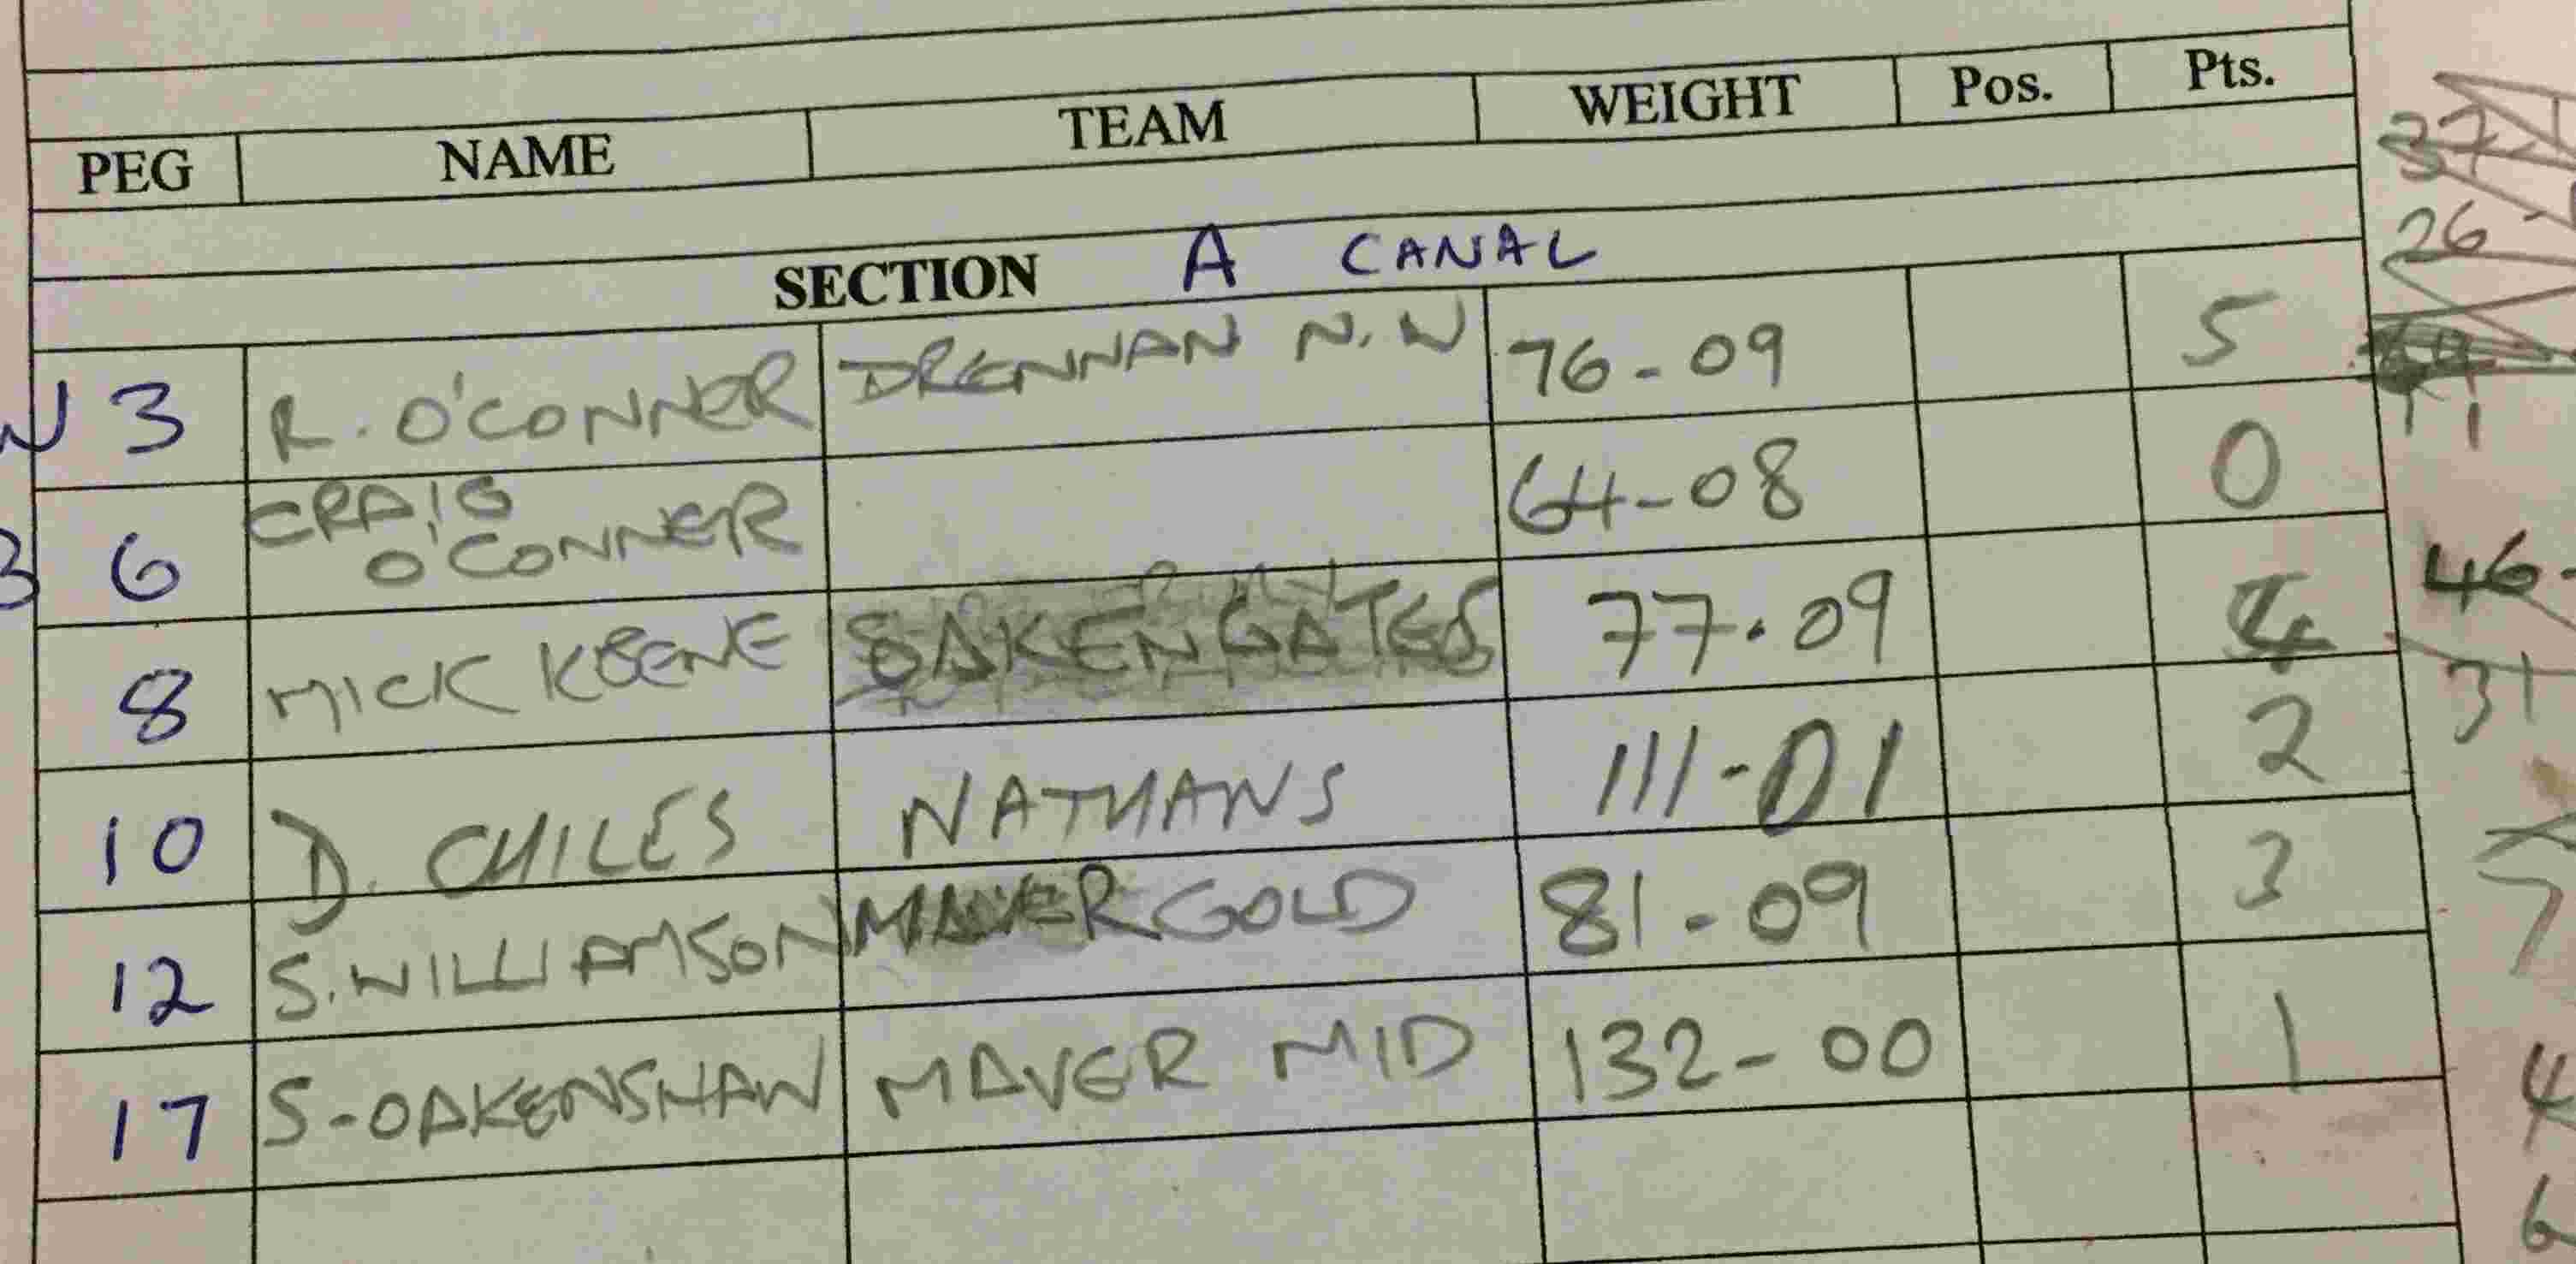 PEG NAME TEAM WEIGHT Pos. Pts.
SECTION A CANAL
N 3 R. O'CONNER DRENNAN N.W 76-09 5
3 6 CRAIG O'CONNER 64-08 0
8 MICK KEENE OAKENGATES 77.09 4
10 D. CHILES NATHANS 111-01 2
12 S. WILLIAMSON MAVER GOLD 81-09 3
17 S-OAKENSHAW MAVER MID 132-00 1
37
26
46-
31
7
4
6